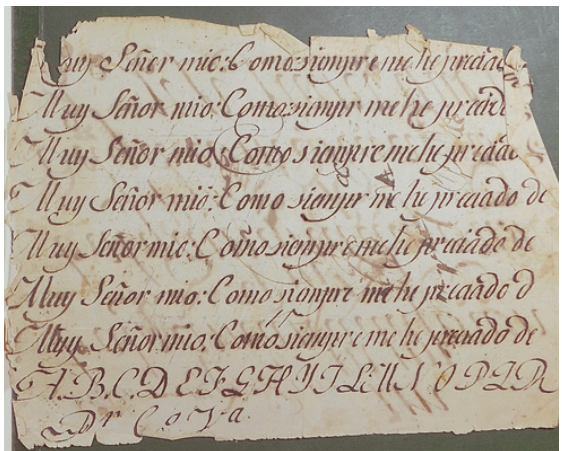 Muy Señor mio: Como siempre me he preciad
Muy Señor mio: Como siempr me he preciad
Muy Señor mio: Como siempre me he preciad
Muy Señor mio: Como siempr me he preciado de
Muy Señor mio: Como siempre me he preciado de
Muy Señor mio: Como siempre me he preciado d
Muy Señor mio: Como siempre me he preciado de
A.B.C.D E F G H Y I L M N O P